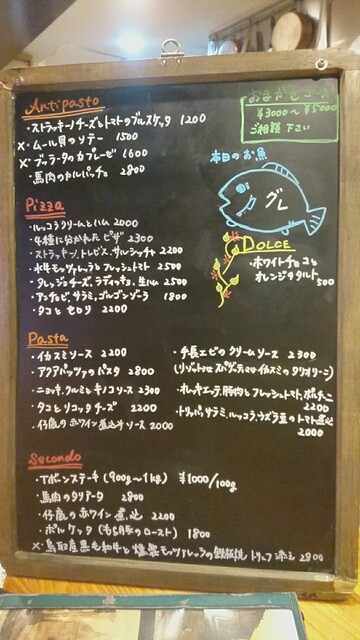 Antipasto
・ストラッキーノチーズとトマトのブルスケッタ 1200
×・ムール貝のソテー 1500
×・ブッラータのカプレーゼ 1600
・馬肉のカルパッチョ 2800
おまかせコース
¥3000〜¥5000
ご相談下さい
本日のお魚
グレ
Pizza
・ルッコラクリームとハム 2000
・4種に分かれたピザ 2300
・ストラッキーノ、トレビス、サルシッチャ 2200
・水牛モッツァレラとフレッシュトマト 2500
・タレッジョチーズ、ラディッキョ、生ハム 2500
・アンチョビ、サラミ、ゴルゴンゾーラ 1800
・タコとセロリ 2200
DOLCE
・ホワイトチョコと
オレンジのタルト
500
Pasta
・イカスミソース 2200
・アクアパッツァのパスタ 2800
・ニョッキ、クルミとキノコソース 2300
・タコとリコッタチーズ 2200
・仔鹿の赤ワイン煮込みソース 2000
・手長エビのクリームソース 2300
(リゾットorスパゲッティorイカスミのタリオリーニ)
・オレキエッテ、豚肉とフレッシュトマト、ポルチーニ
2200
・トリッパ、サラミ、ルッコラ、ウズラ豆のトマト煮込
2000
Secondo
・Tボーンステーキ (900g〜1kg) ¥1000/100g
・馬肉のタリアータ 2800
・仔鹿の赤ワイン煮込 2200
・ポルケッタ (もち豚のロースト) 1800
×・鳥取産黒毛和牛と燻製モッツァレッラの鉄板焼 トリュフ添え 2800